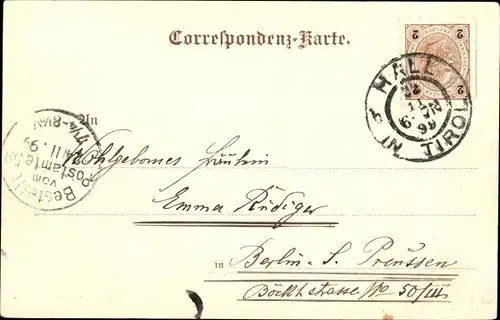 Correspondenz-Karte.
2 2
HALL
IN TIROL
99
Bestellt
vom
Postamte 59
11.99
An
Wohlgebornes Fräulein
Emma Rüdiger
in Berlin - S. Preussen
Böckhstrasse No 50/III